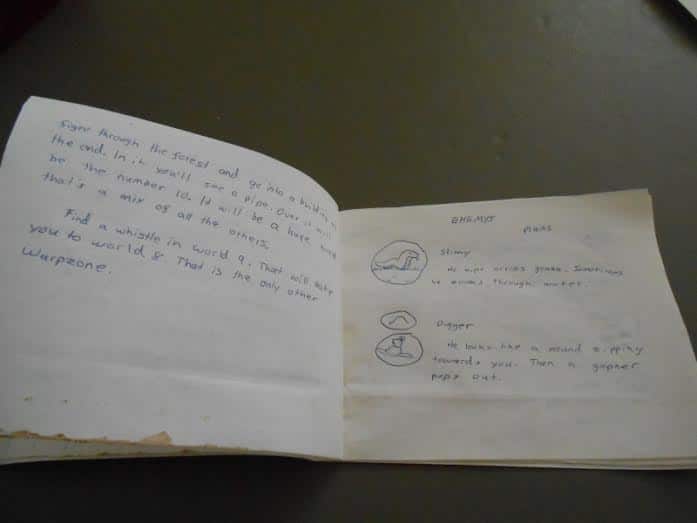 through the forest and go into a building at
the end. In it you'll see a pipe. Over it will
be the number 10. It will be a huge world
that's a mix of all the others.
Find a whistle in world 9. That will take
you to world 8. That is the only other
Warpzone.
ENEMYS
PLAINS
Slimy
He across grass. Sometimes
he through water.
Digger
He looks like a mound zipping
towards you. Then a gopher
pops out.